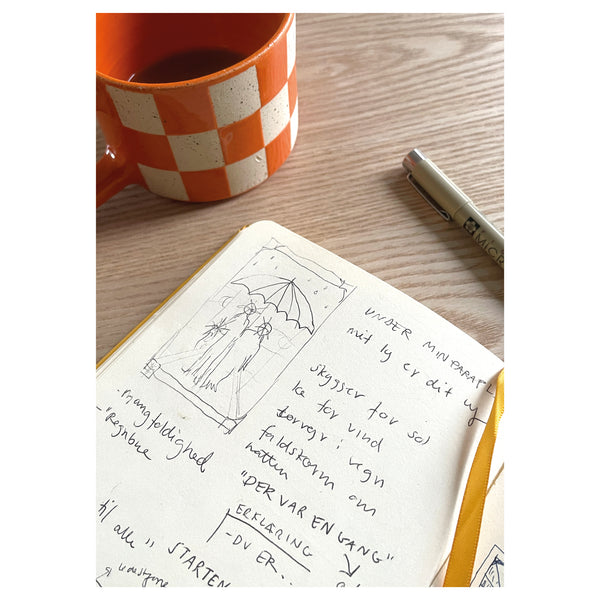 UNDER MIN PARAPL
mit ly er dit ly
skygger for sol
for vind
i regn
faldskærm om
natten
"DER VAR EN GANG"
ERKLÆRING
-DU ER...
-mangfoldighed
-"Regnbue
til alle"
STARTEN
MICR